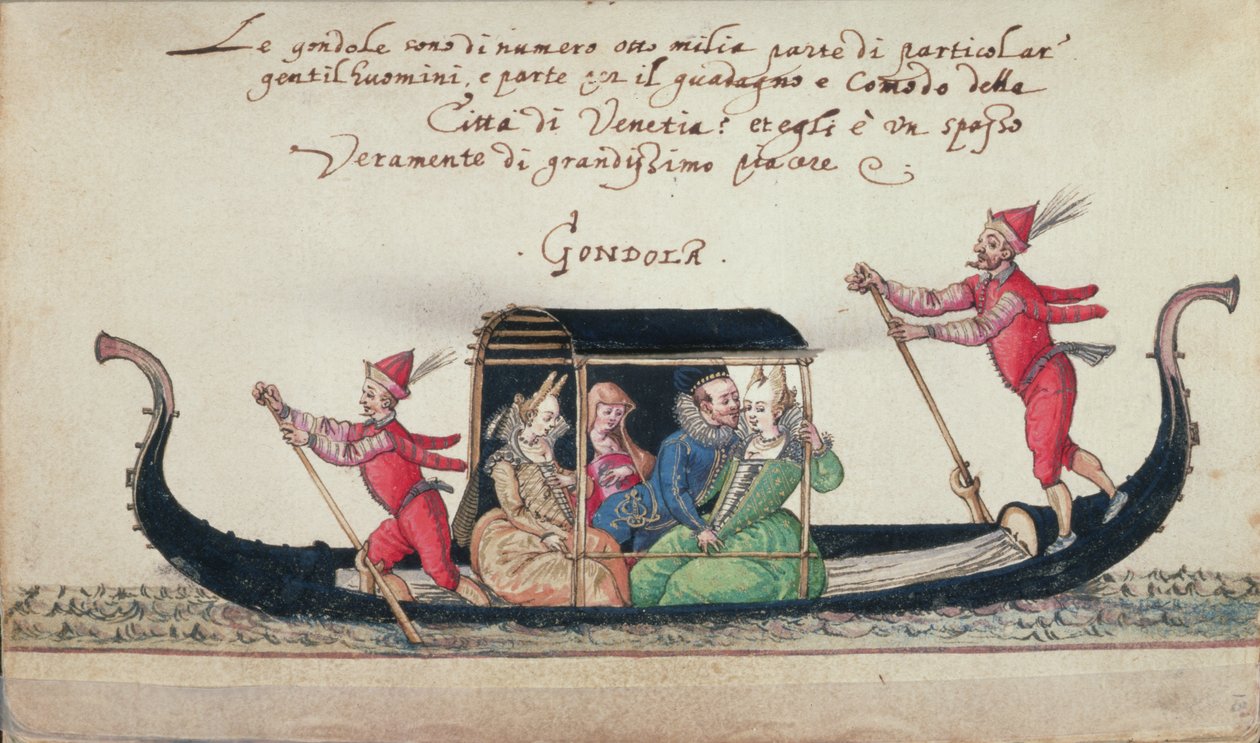 Le gondole sono di numero otto milia parte di particolar'
gentil huomini, e parte per il guadagno e comodo della
Citta di Venetia: et egli è un spasso
Veramente di grandissimo piacere
· GONDOLA ·